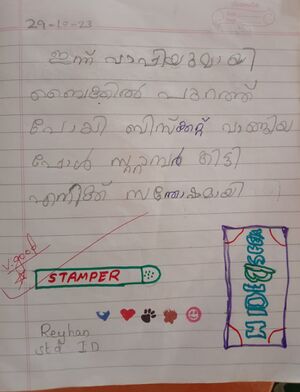 29-10-23
ഇന്ന് വാപ്പിയുമായി
ബൈക്കിൽ പുറത്ത്
പോയി ബിസ്ക്കറ്റ് വാങ്ങിയ
പ്പോൾ സ്റ്റാമ്പർ കിട്ടി
എനിക്ക് സന്തോഷമായി
V.good
STAMPER
HIDE & SEEK
Reyhan
std I D